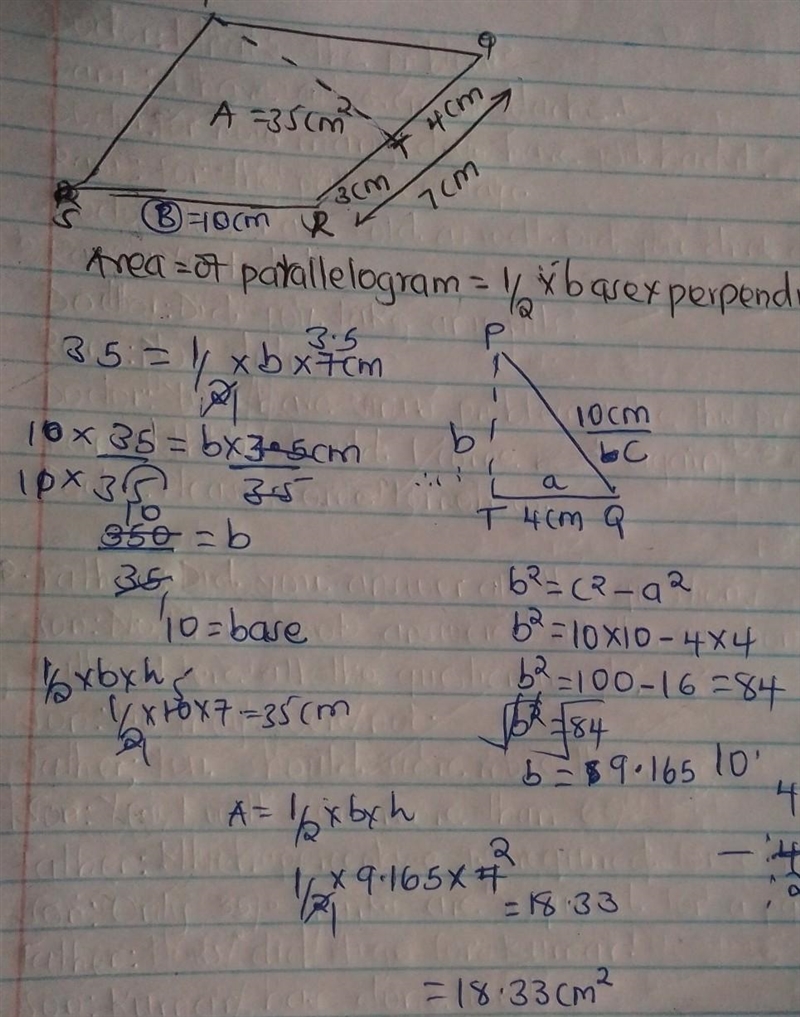 Q
A = 35cm²
4cm
T
3cm
7cm
S
B = 10cm
R
Area = of parallelogram = 1/2 × base × perpendi
35 = 1/2 × b × 7cm
3.5
10 × 35 = b × 3.5cm
10 × 35
35
10
350 = b
35
10 = base
1/2 × b × h
5
1/2 × 10 × 7 = 35cm
1
P
b
10cm
C
a
T 4cm Q
b² = c² - a²
b² = 10×10 - 4×4
b² = 100 - 16 = 84
√b² = √84
b = 9.165
10
4
A = 1/2 × b × h
1/2 × 9.165 × 4
2
1
= 18.33
- 4
= 18.33cm²